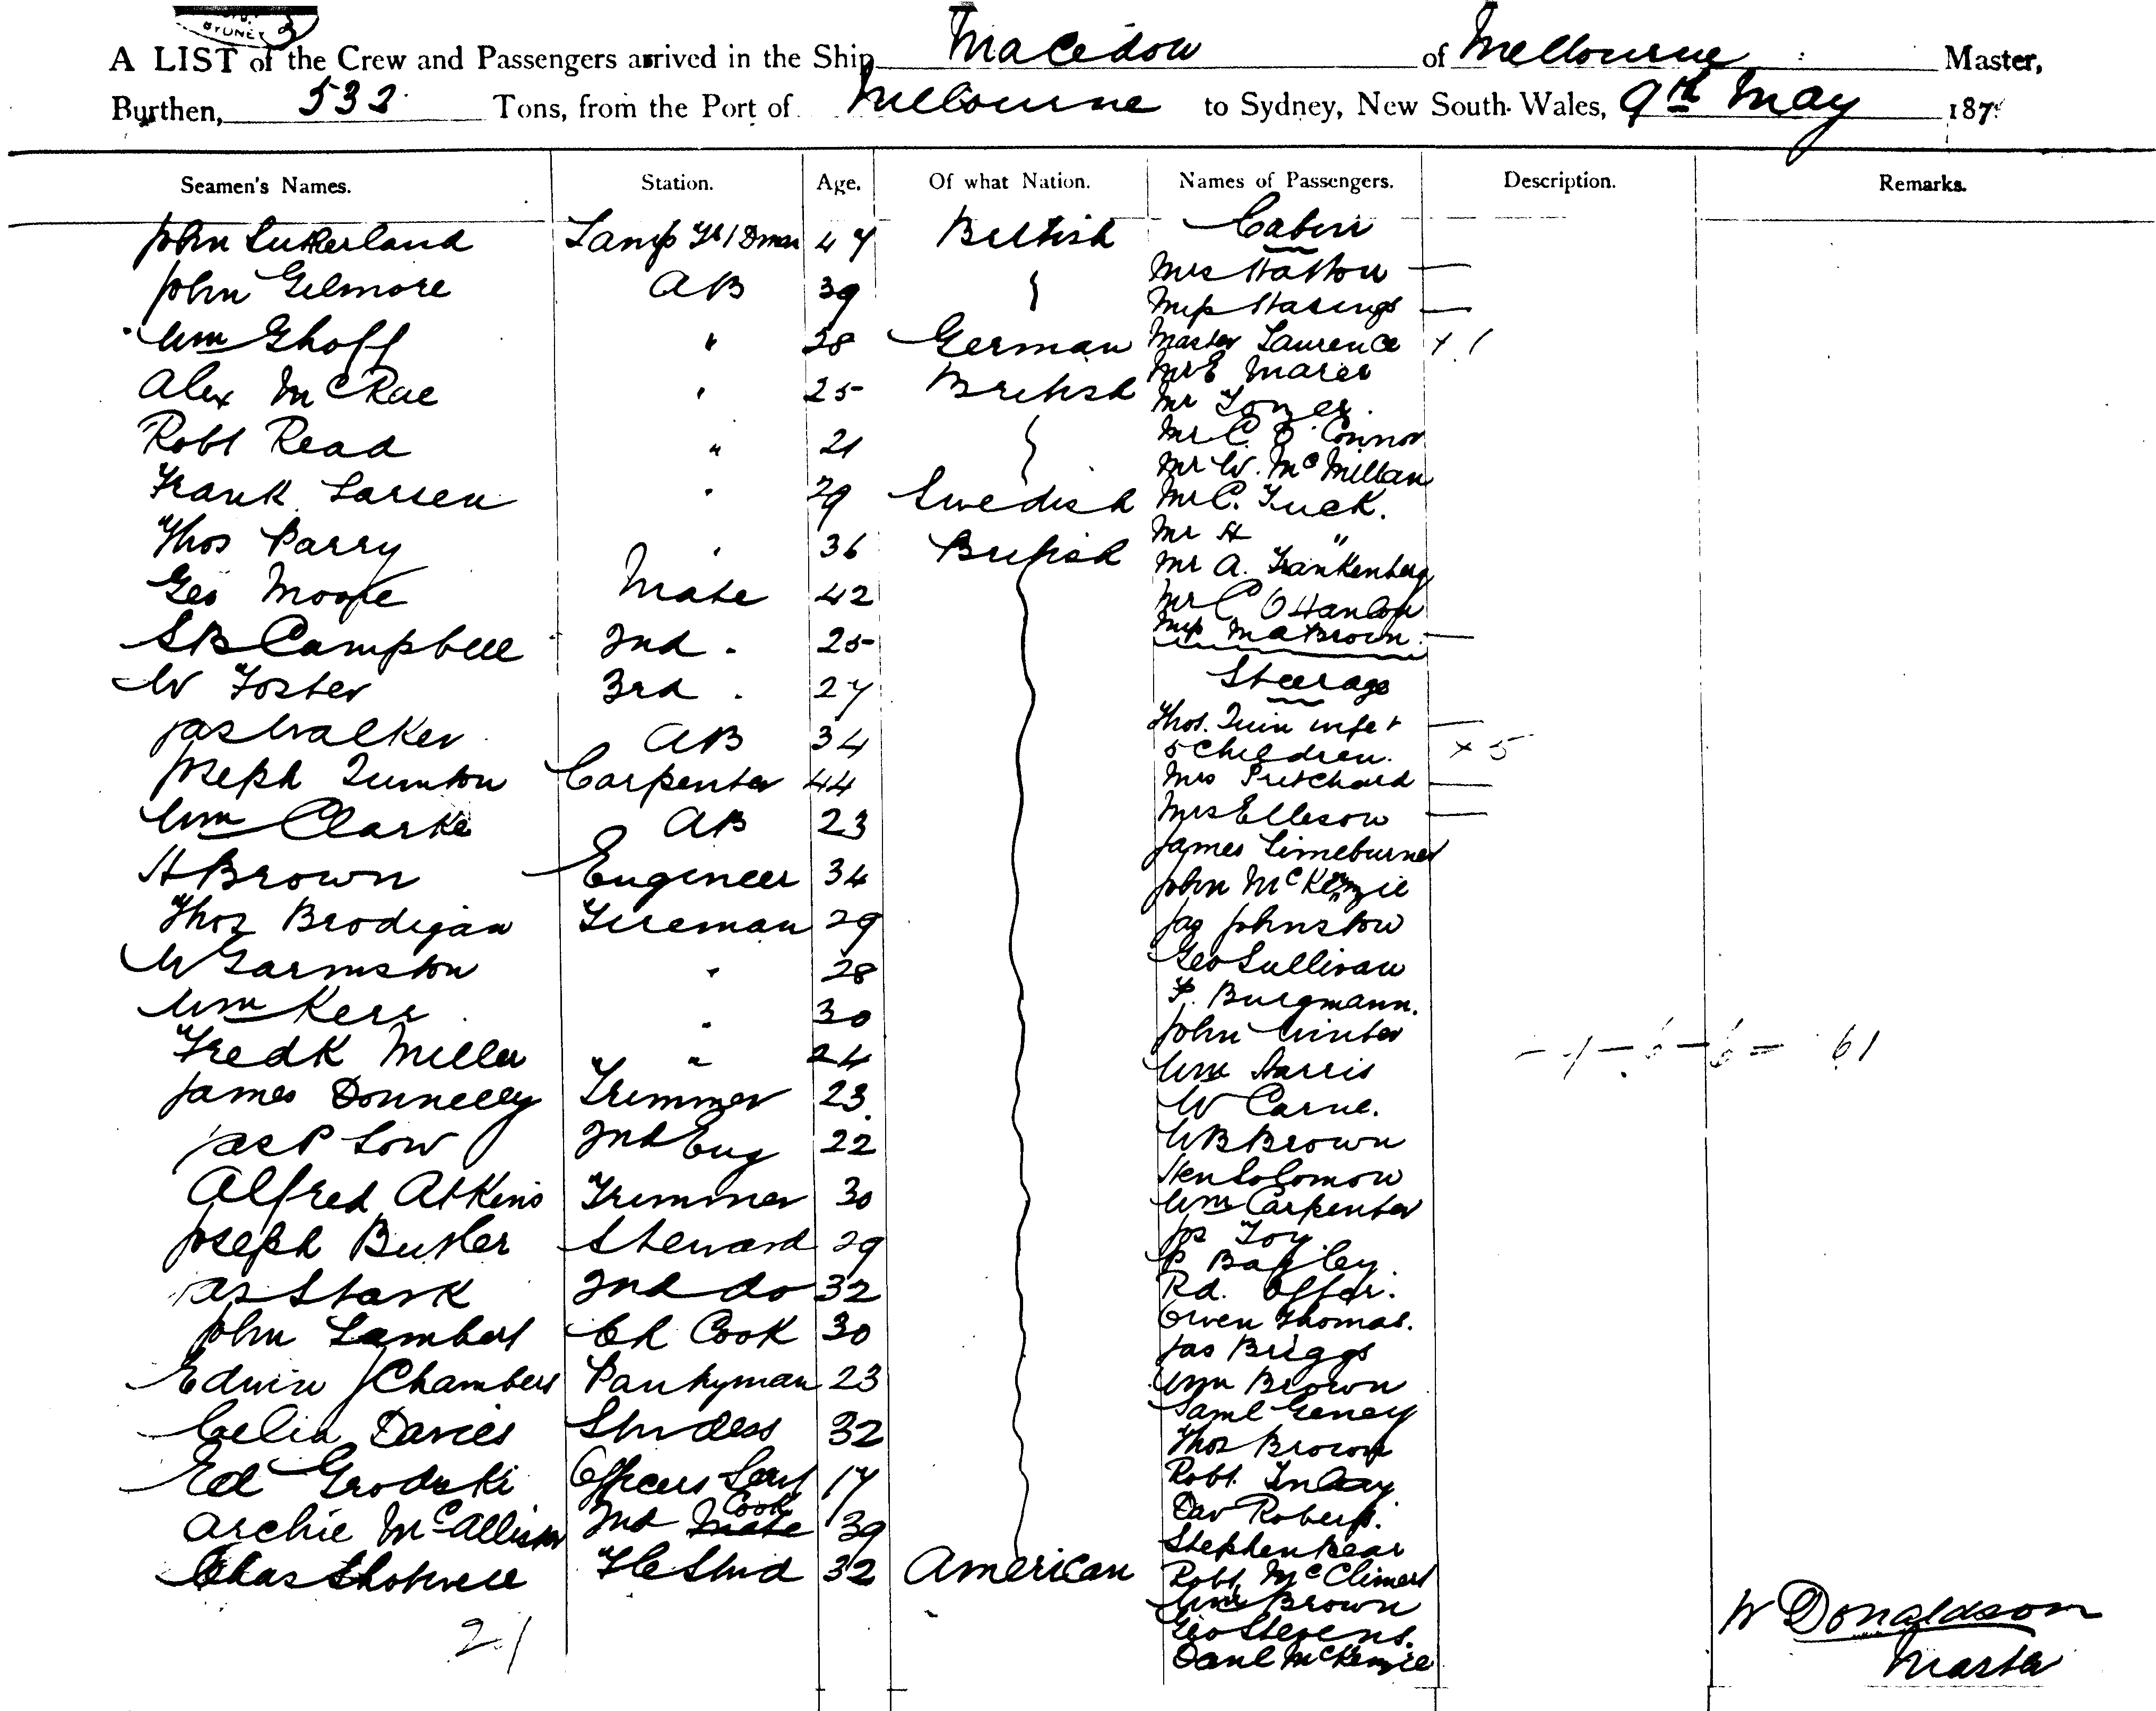 SYDNEY
A LIST of the Crew and Passengers arrived in the Ship Macedon of Melbourne Master,
Burthen, 532 Tons, from the Port of Melbourne to Sydney, New South Wales, 9th May 187
Seamen's Names. Station. Age. Of what Nation. Names of Passengers. Description. Remarks.
John Sutherland Lamp 47 British
John Gilmore AB 39
Wm Ghoff " 28 German
Alex McRae " 25 British
Robt Read " 21
Frank Larsen " 29 Swedish
Thos Parry " 36 British
Geo Moore Mate 42
SB Campbell 2nd " 25
W Foster 3rd " 27
Jas Walker AB 34
Joseph Quinton Carpenter 44
Wm Clarke AB 23
H Brown Engineer 34
Thos Brodigan Fireman 29
W Garmston " 28
Wm Kerr " 30
Fredk Miller " 24
James Donnelly Trimmer 23
Jas P Low 2nd Eng 22
Alfred Atkins Trimmer 30
Joseph Butler Steward 29
Jas Stark 2nd do 32
John Lambert Ch Cook 30
Edwin J Chambers Pantryman 23
Celia Davies Stwdess 32
Ed Grodski Officers Servt 17
Archie McAllister 2nd Mate Cook 39
Chas Shotwell FC Stwd 32 American
21
Cabin
Mrs Hatton —
Miss Hastings —
Master Laurence x 1
Mr E Marer
Mr Tozer.
Mr C. O'Connor
Mr W. McMillan
Mr C. Tuck.
Mr H "
Mr A. Frankenberg
Mr C O'Hanlon
Miss M A Brown. —
Steerage
Thos. Quin wife + —
5 children. x 5
Mrs Pritchard —
Mrs Elleson —
James Limeburner
John McKenzie
Jas Johnston
Geo Sullivan
F. Burgmann.
John Winter
Wm Harris
W Carne.
WB Brown
Hen Solomon
Wm Carpenter
Jos Foy
P Bagley.
Rd. Offer.
Owen Thomas.
Jas Briggs
Wm Brown
Saml Geney
Thos Brown
Robt. Inlay
Dav Roberts.
Stephen Bear
Robt McCliment
Wm Brown
Geo Stevens.
Danl McKenzie
61
W Donaldson
Master